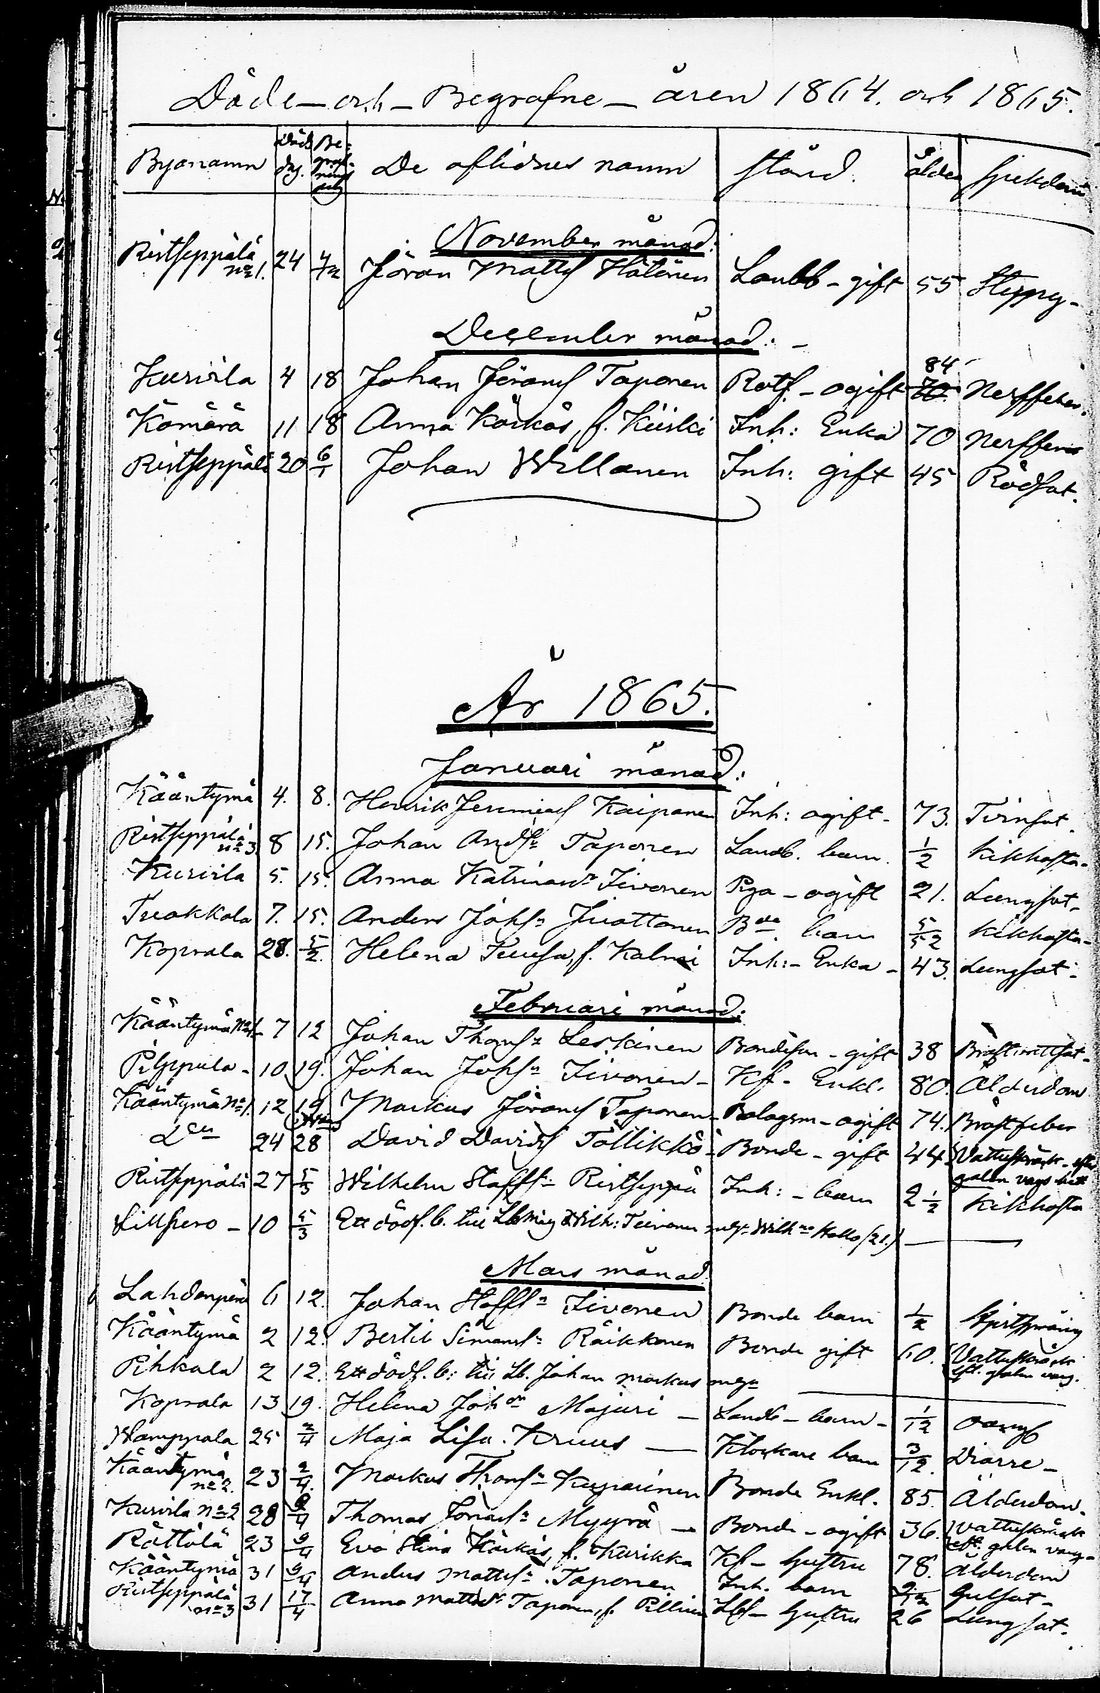 Döde och Begrafne åren 1864. och 1865.
Byanamn Död dag. Begrafnings dag De aflidnes namn stånd. ålder sjukdom
November månad:
Ristseppälä No 1. 24 4/12 Jöran Matts Hätönen Landb - gift 55
December månad:
Kurivla 4 18 Johan Jörans Taponen Rotf. - ogift 84 Nerffeber.
Kömärä 11 18 Anna Körkäs, f. Kiiski Inh: Enka 70 Nerffeber
Ristseppälä 20 6/1 Johan Willanen Inh: gift 45 Rödsot.
År 1865.
Januari månad:
Kääntymä 4. 8. Henrik Jeremias Kaiponen Inh: ogift - 73. Tvinsot.
Ristseppälä No 3. 8 15. Johan Ands n Taponen Landb. barn. 1/2 kikhosta
Kurivla 5. 15. Anna Katrina Tivonen Piga - ogift 21. Lungsot
Tuokkola 7. 15. Anders Johs n Juottonen Bde. barn 5/52 kikhosta
Koprala 28. 5/2. Helena Teussa, f. Kalmi Inh: - Enka - 43. Lungsot
Februari månad:
Kääntymä No 1 7 12 Johan Thoms n Leskinen Bondeson - gift 38
Pilppula - 10 19. Johan Johs n Tivonen - Kf. Enkl. 80. Ålderdom
Kääntymä No 1. 12 19 Markus Jörans Taponen Bolagsm - ogift 74. Bröstfeber
D o 24 28 David Davids Töllikkö - Bonde - gift 44 Vattuskräck - efter
galen vargs bett
Ristseppälä 27 5/3 Wilhelm Staffs n Ristseppä Inh: - barn 2 1/2 kikhosta
Lillpero - 10 5/3 Ett dödf. b. till Wilh: Teivonen
Mars månad.
Lahdenperä 6 12. Johan Staffs n Tivonen Bonde barn 1/2
Kääntymä 2 12. Bertil Simons n Räikkönen Bonde gift 60. Vattuskräck
eft. galen varg.
Pihkala 2 12. Ett dödf. b: till Lb. Johan Markus
Koprala 13 19. Helena Joh dr Majuri - Landb - barn - 1/12
Wamppala 25 2/4 Maja Lisa Kruus - Klockare barn 3/12. Diarre -
Kääntymä No 2. 23 2/4. Markus Thoms n Bonde Enkl. 85. Ålderdom.
Kurivla No 2 28 9/4 Thomas Jörans n Myyrä - Bonde - ogift 36. Vattuskräck
eft. galen varg -
Rättölä 23 9/4 Eva Stina Körkäs, f. Kurikka Kf - hustru 78. Ålderdom
Kääntymä 31 9/4 Anders Matts n Taponen Inh. barn Gulsot -
Ristseppälä No 3 31 17/4 Anna Matts dr Taponen, f. Pillinen Lbf - hustru 26 Lungsot.